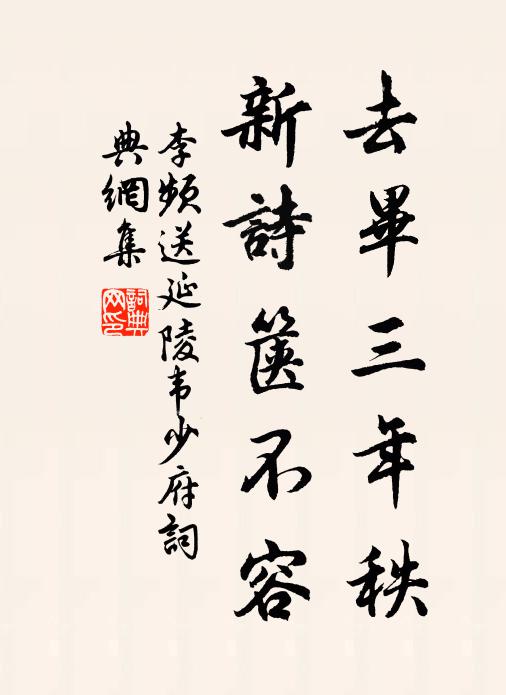 去畢三年秩
新詩篋不容
李頻送延陵韦少府詞
典網集
詞典
网印